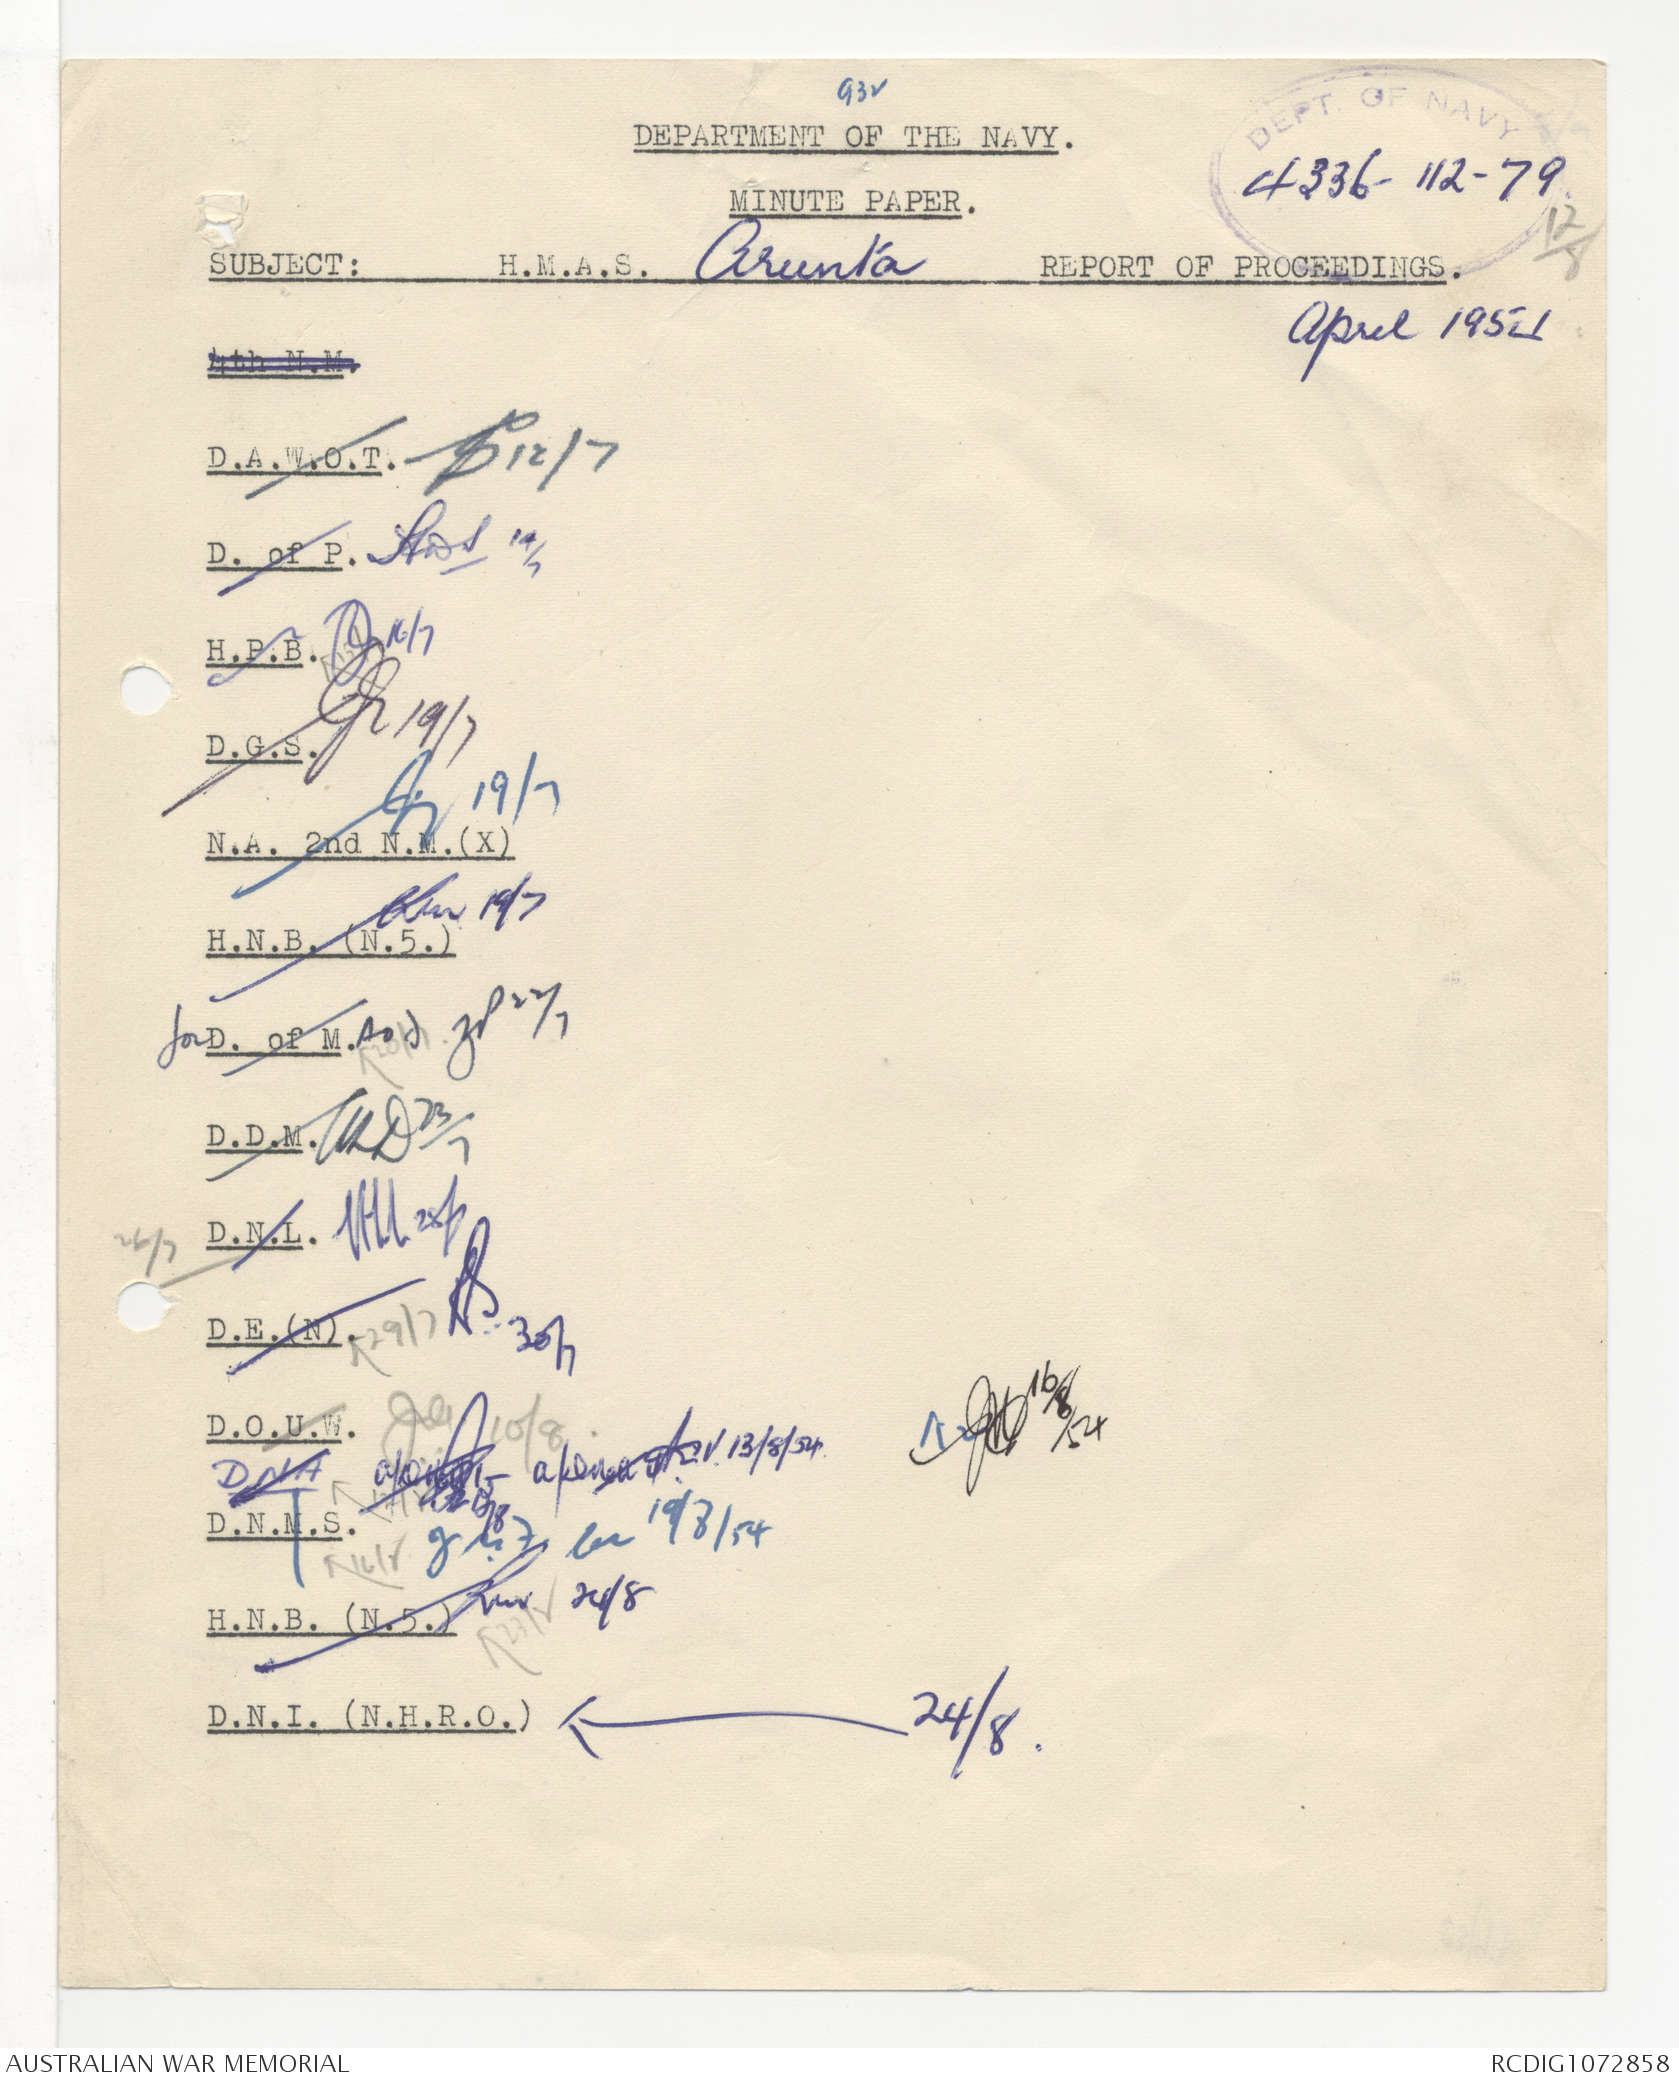 93v
DEPARTMENT OF THE NAVY.
DEPT. OF NAVY
4336-112-79
MINUTE PAPER.
12/8
SUBJECT: H.M.A.S. Arunta REPORT OF PROCEEDINGS.
April 1954
4th N.M.
D.A.W.O.T. 12/7
D. of P. 14/7
H.P.B. 16/7
D.G.S. 19/7
N.A. 2nd N.M.(X) 19/7
H.N.B. (N.5.) 19/7
for D. of M. 22/7
D.D.M. 23/7
D.N.L. 28/7
26/7
D.E.(N). 29/7 30/7
D.O.U.W. 10/8
16/8/54
DNA 13/8/54
D.N.M.S. 19/8/54
H.N.B. (N.5.) 24/8
D.N.I. (N.H.R.O.) 24/8.
AUSTRALIAN WAR MEMORIAL
RCDIG1072858